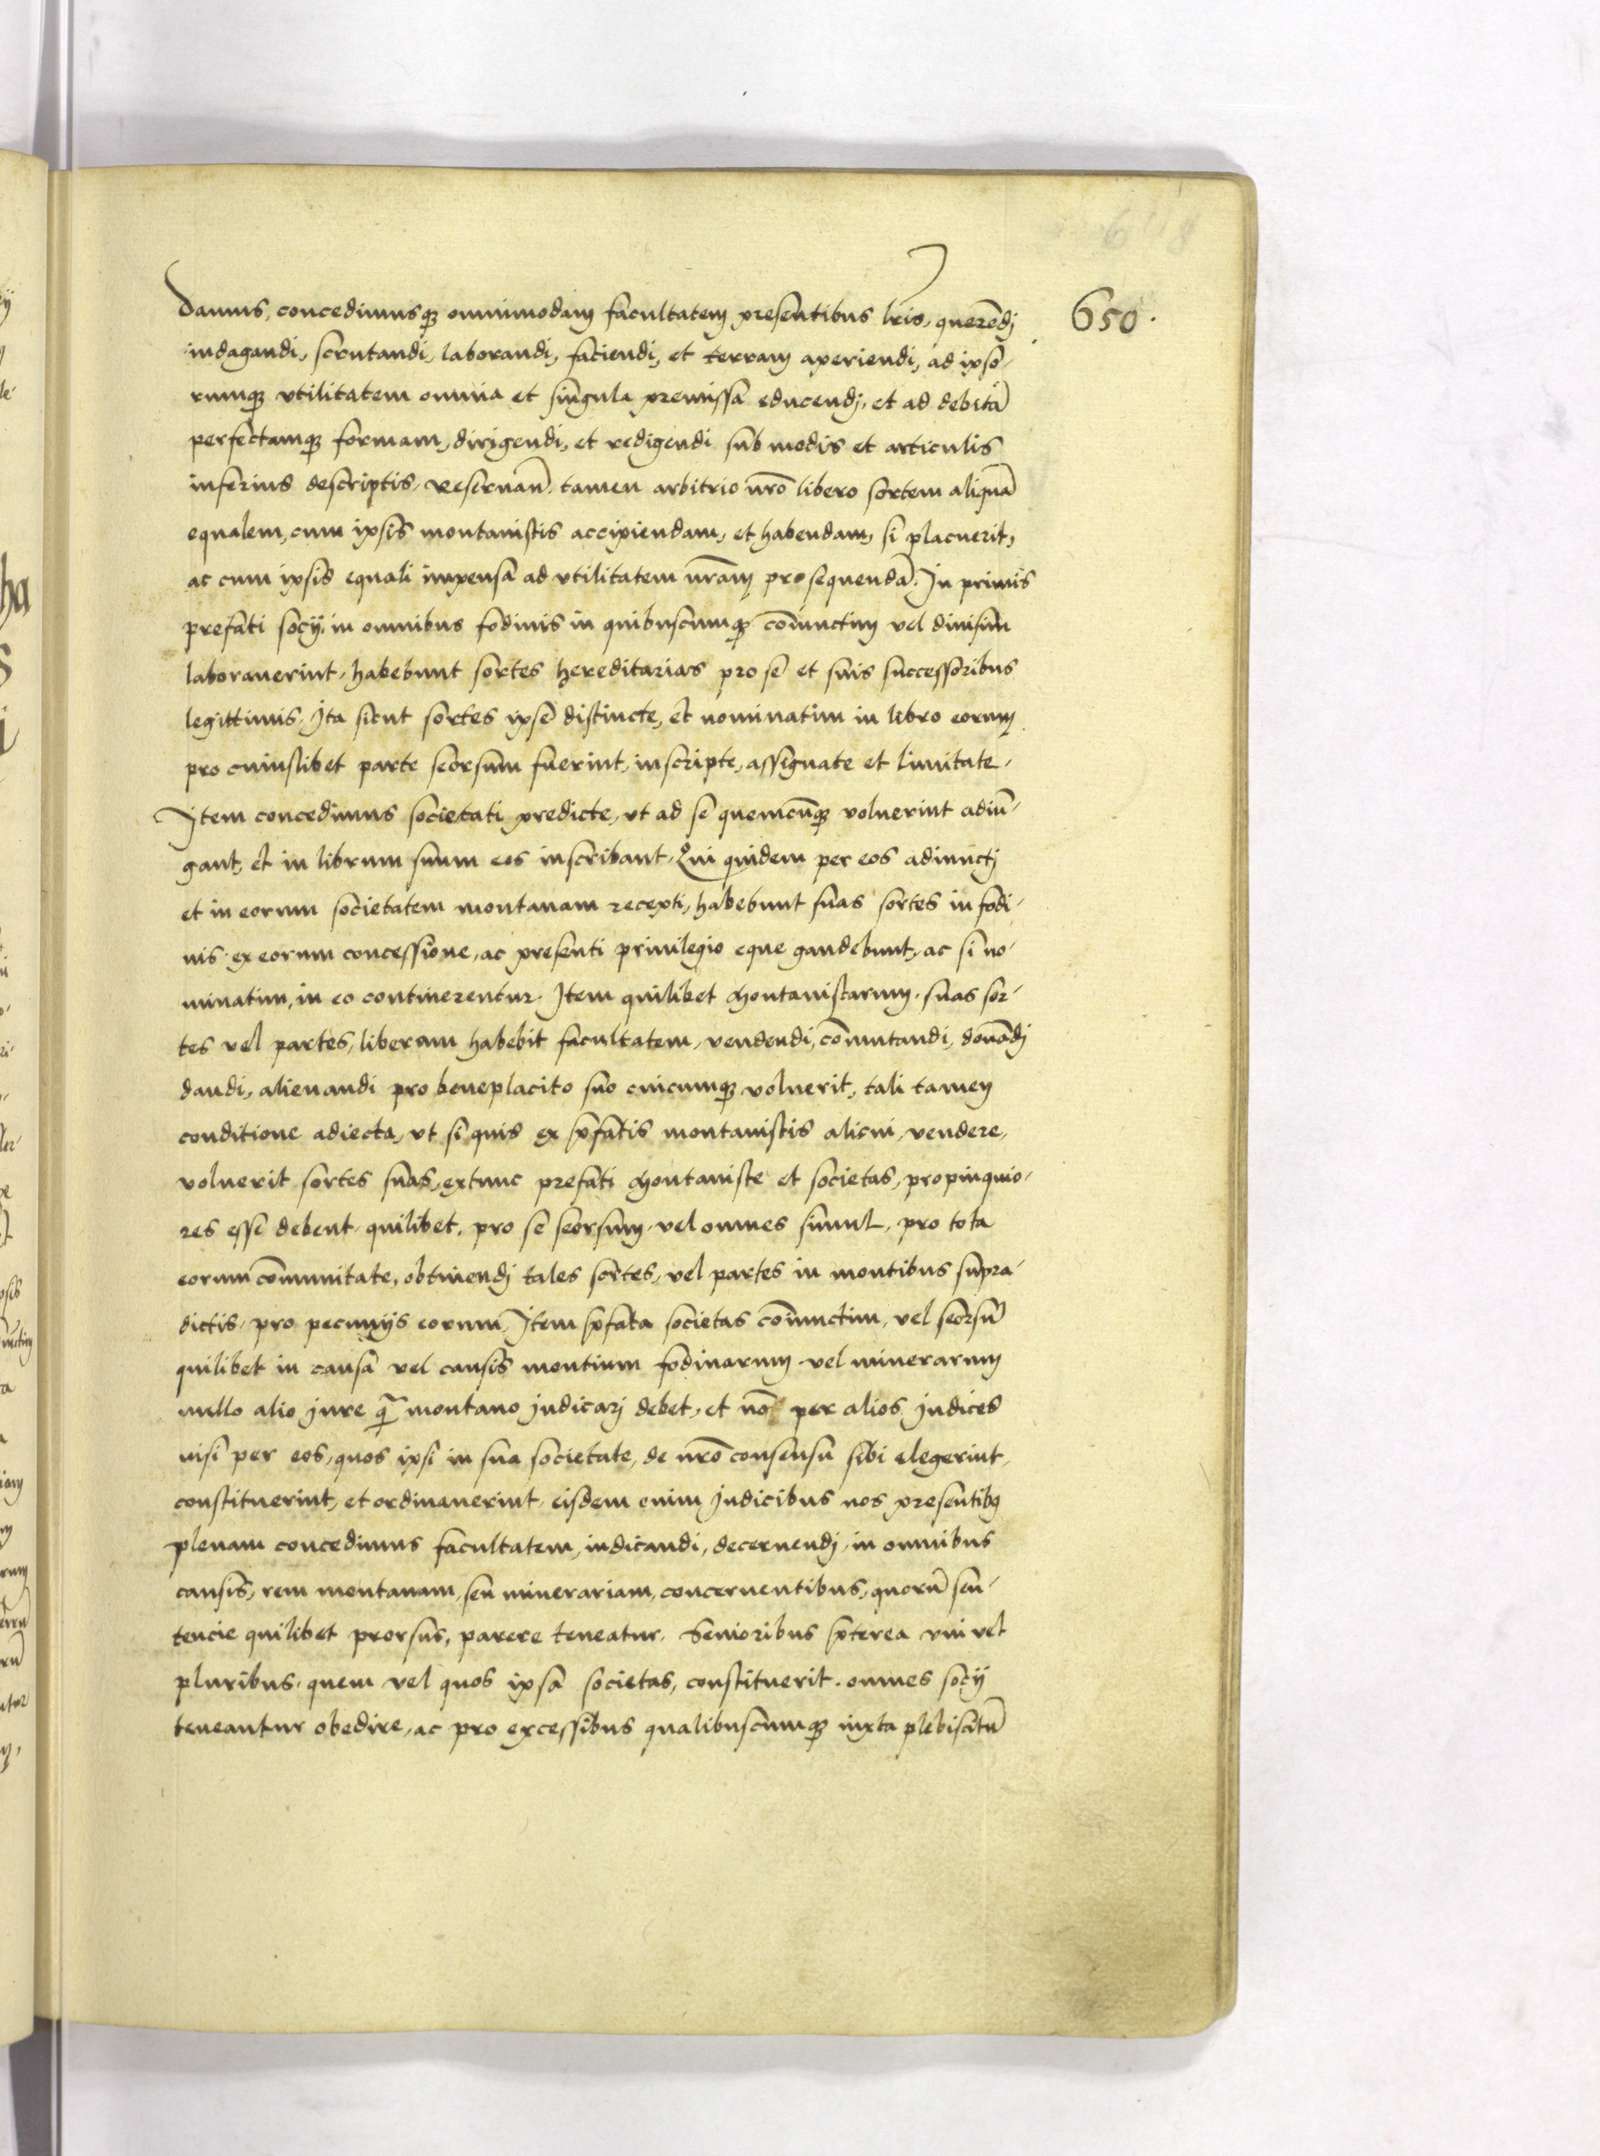 648
650.
damus, concedimusqȝ omnimodam facultatem presentibus lr̃is, querẽdj
indagandi, scrutandi, laborandi, faciendi, et terram aperiendi, ad ipso-
rumqȝ vtilitatem omnia et singula premissa educendj, et ad debitã
perfectamqȝ formam, dirigendi, et redigendi sub modis et articulis
inferius descriptis, Reseruan̄ tamen arbitrio nr̃o libero sortem aliquã
equalem, cum ipsis montanistis accipiendam, et habendam, si placuerit,
ac cum ipsis equali impensa ad vtilitatem nr̃am prosequendã. In primis
prefati socÿ in omnibus fodinis in quibuscumqȝ cõiunctim vel diuisim
laborauerint, habebunt sortes hereditarias pro se et suis successoribus
legittimis, Ita sicut sortes ipse distincte, et nominatim in libro eorum
pro cuiuslibet parte seorsum fuerint, inscripte, assignate et limitate.
Item concedimus societati predicte, vt ad se quemcũqȝ voluerint adiũ-
gant, et in librum suum eos inscribant, Qui quidem per eos adiunctj
et in eorum societatem montanam recepti, habebunt suas sortes in fodi-
nis ex eorum concessione, ac presenti priuilegio eque gaudebunt, ac si no-
minatim, in eo continerentur. Item quilibet Montanistarum, suas sor-
tes vel partes, liberam habebit facultatem, vendendi, cõmutandi, donãdj
dandi, alienandi pro beneplacito suo cuicumqȝ voluerit, tali tamen
conditione adiecta, vt si quis ex p̃fatis montanistis alicui, vendere,
voluerit sortes suas, extunc prefati Montaniste et societas, propinquio-
res esse debent quilibet, pro se seorsum vel omnes simul, pro tota
eorum cõmunitate, obtinendj tales sortes, vel partes in montibus supra-
dictis, pro pecunijs eorum. Item p̃fata societas cõiunctim, vel seorsũ
quilibet in causa vel causis montium fodinarum vel minerarum
nullo alio jure q̃ montano judicarj debet, et nõ per alios judices
nisi per eos, quos ipsi in sua societate, de nr̃o consensu sibi elegerint,
constituerint, et ordinauerint, eisdem enim judicibus nos presentibꝯ
plenam concedimus facultatem, iudicandi, decernendj, in omnibus
causis, rem montanam, seu minerariam, concernentibus, quorũ sen-
tencie quilibet prorsus, parere teneatur. Senioribus p̃terea vni vel
pluribus, quem vel quos ipsa societas, constituerit, omnes socÿ
teneantur obedire, ac pro excessibus qualibuscumqȝ iuxta plebiscitũ